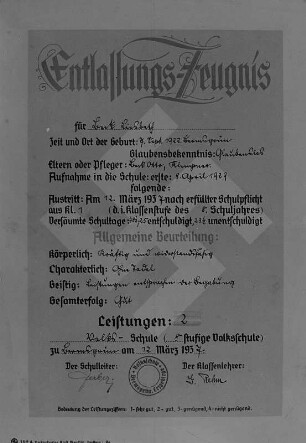 Entlassungs-Zeugnis
für Beck
Zeit und Ort der Geburt: 7. Sept. 1922
Glaubensbekenntnis: Glaubenslos
Eltern oder Pfleger: Beck Otto, Klempner
Aufnahme in die Schule: erste: April 1929
folgende:
Austritt: Am 12. März 1937 nach erfüllter Schulpflicht
aus Kl. 1 (d. i. Klassenstufe des 8. Schuljahres)
Versäumte Schultage: entschuldigt, unentschuldigt
Allgemeine Beurteilung:
Körperlich: Kräftig und widerstandsfähig
Charakterlich: Ohne Tadel
Geistig: Leistungen entsprechen der Begabung
Gesamterfolg: Gut
Leistungen: 2
Volks- Schule ( 8 stufige Volksschule)
zu am 12. März 1937.
Der Schulleiter: Der Klassenlehrer:
Bedeutung der Leistungsziffern: 1 - sehr gut, 2 - gut, 3 - genügend, 4 - nicht genügend.